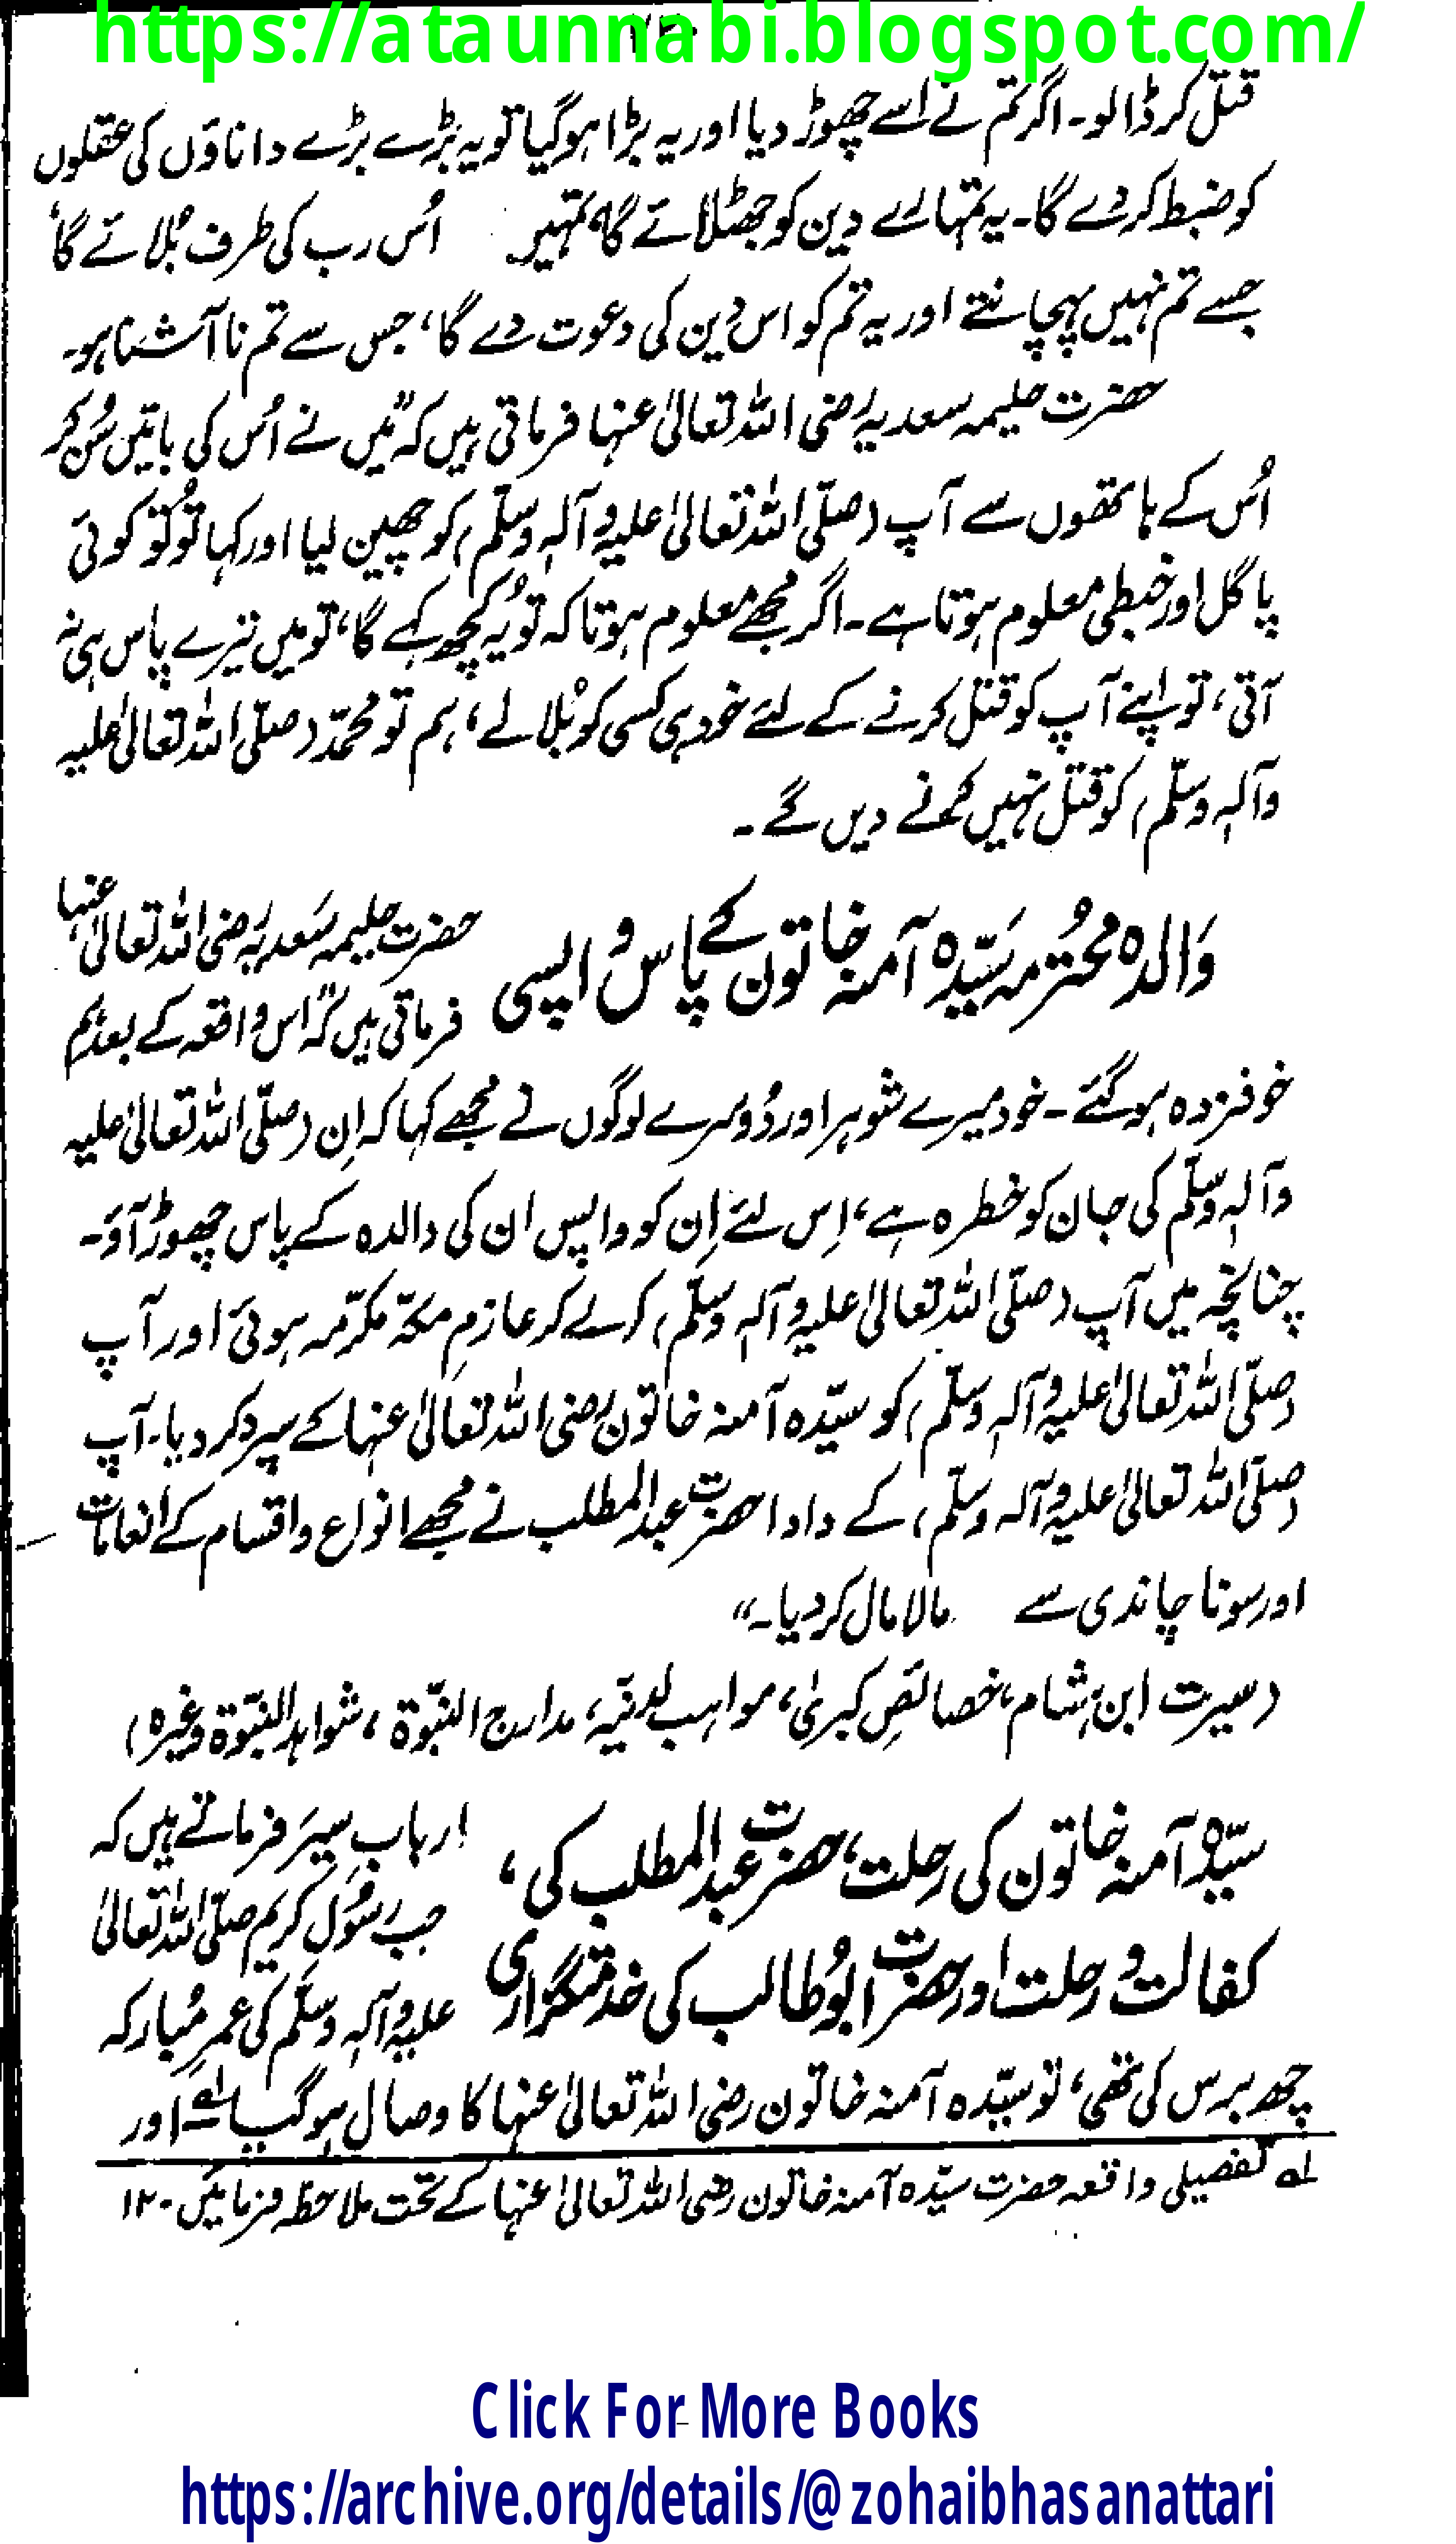 https://ataunnabi.blogspot.com/
قتل کر ڈالو۔ اگر تم نے اسے چھوڑ دیا اور یہ بڑا ہو گیا تو یہ بڑے بڑے داناؤں کی عقلوں
کو ضبط کر دے گا۔ یہ تمہارے دین کو جھٹلائے گا، تمہیں اُس رب کی طرف بُلائے گا،
جسے تم نہیں پہچانتے اور یہ تم کو اس دین کی دعوت دے گا، جس سے تم ناآشنا ہو۔
حضرت حلیمہ سعدیہ رضی اللہ تعالیٰ عنہا فرماتی ہیں کہ "میں نے اُس کی باتیں سُن کر
اُس کے ہاتھوں سے آپ (صلّی اللہ تعالیٰ علیہ وآلہٖ وسلّم) کو چھین لیا اور کہا تُو تو کوئی
پاگل اور خبطی معلوم ہوتا ہے۔ اگر مجھے معلوم ہوتا کہ تو یہ کچھ کہے گا، تو میں تیرے پاس ہی نہ
آتی، تو اپنے آپ کو قتل کرنے کے لئے خود ہی کسی کو بُلا لے، ہم تو محمّد (صلّی اللہ تعالیٰ علیہ
وآلہٖ وسلّم) کو قتل نہیں کرنے دیں گے۔
وَالدہ محترمہ سَیّدہ آمنہ خاتون کے پاس واپسی
حضرت حلیمہ سَعدیہ رضی اللہ تعالیٰ عنہا
فرماتی ہیں کہ "اس واقعہ کے بعد ہم
خوفزدہ ہو گئے۔ خود میرے شوہر اور دُوسرے لوگوں نے مجھے کہا کہ اِن (صلّی اللہ تعالیٰ علیہ
وآلہٖ وسلّم کی جان کو خطرہ ہے، اِس لئے اِن کو واپس ان کی والدہ کے پاس چھوڑ آؤ۔
چنانچہ میں آپ (صلّی اللہ تعالیٰ علیہ وآلہٖ وسلّم) کرلے کر عازمِ مکّہ مکرّمہ ہوئی اور آپ
(صلّی اللہ تعالیٰ علیہ وآلہٖ وسلّم) کو سیّدہ آمنہ خاتون رضی اللہ تعالیٰ عنہا کے سپرد کر دیا۔ آپ
(صلّی اللہ تعالیٰ علیہ وآلہٖ وسلّم) کے دادا حضرت عبدالمطلب نے مجھے انواع و اقسام کے انعامات
اور سونا چاندی سے مالا مال کر دیا۔"
(سیرت ابن ہشام، خصائصِ کبریٰ، مواہب لدنّیہ، مدارج النبّوۃ، شواہد النبّوۃ وغیرہ)
سیّدہ آمنہ خاتون کی رحلت، حضرت عبدالمطلب کی،
کفالت و رحلت اور حضرت ابوُطالب کی خدمتگزاری
اربابِ سِیَر فرماتے ہیں کہ
جب رسُولِ کریم صلّی اللہ تعالیٰ
علیہ وآلہٖ وسلّم کی عمرِ مُبارکہ
چھ برس کی تھی، تو سیّدہ آمنہ خاتون رضی اللہ تعالیٰ عنہا کا وصال ہو گیا لہ اور
لہ تفصیلی واقعہ حضرت سیّدہ آمنہ خاتون رضی اللہ تعالیٰ عنہا کے تحت ملاحظہ فرمائیں۔ ۱۲
Click For More Books
https://archive.org/details/@zohaibhasanattari